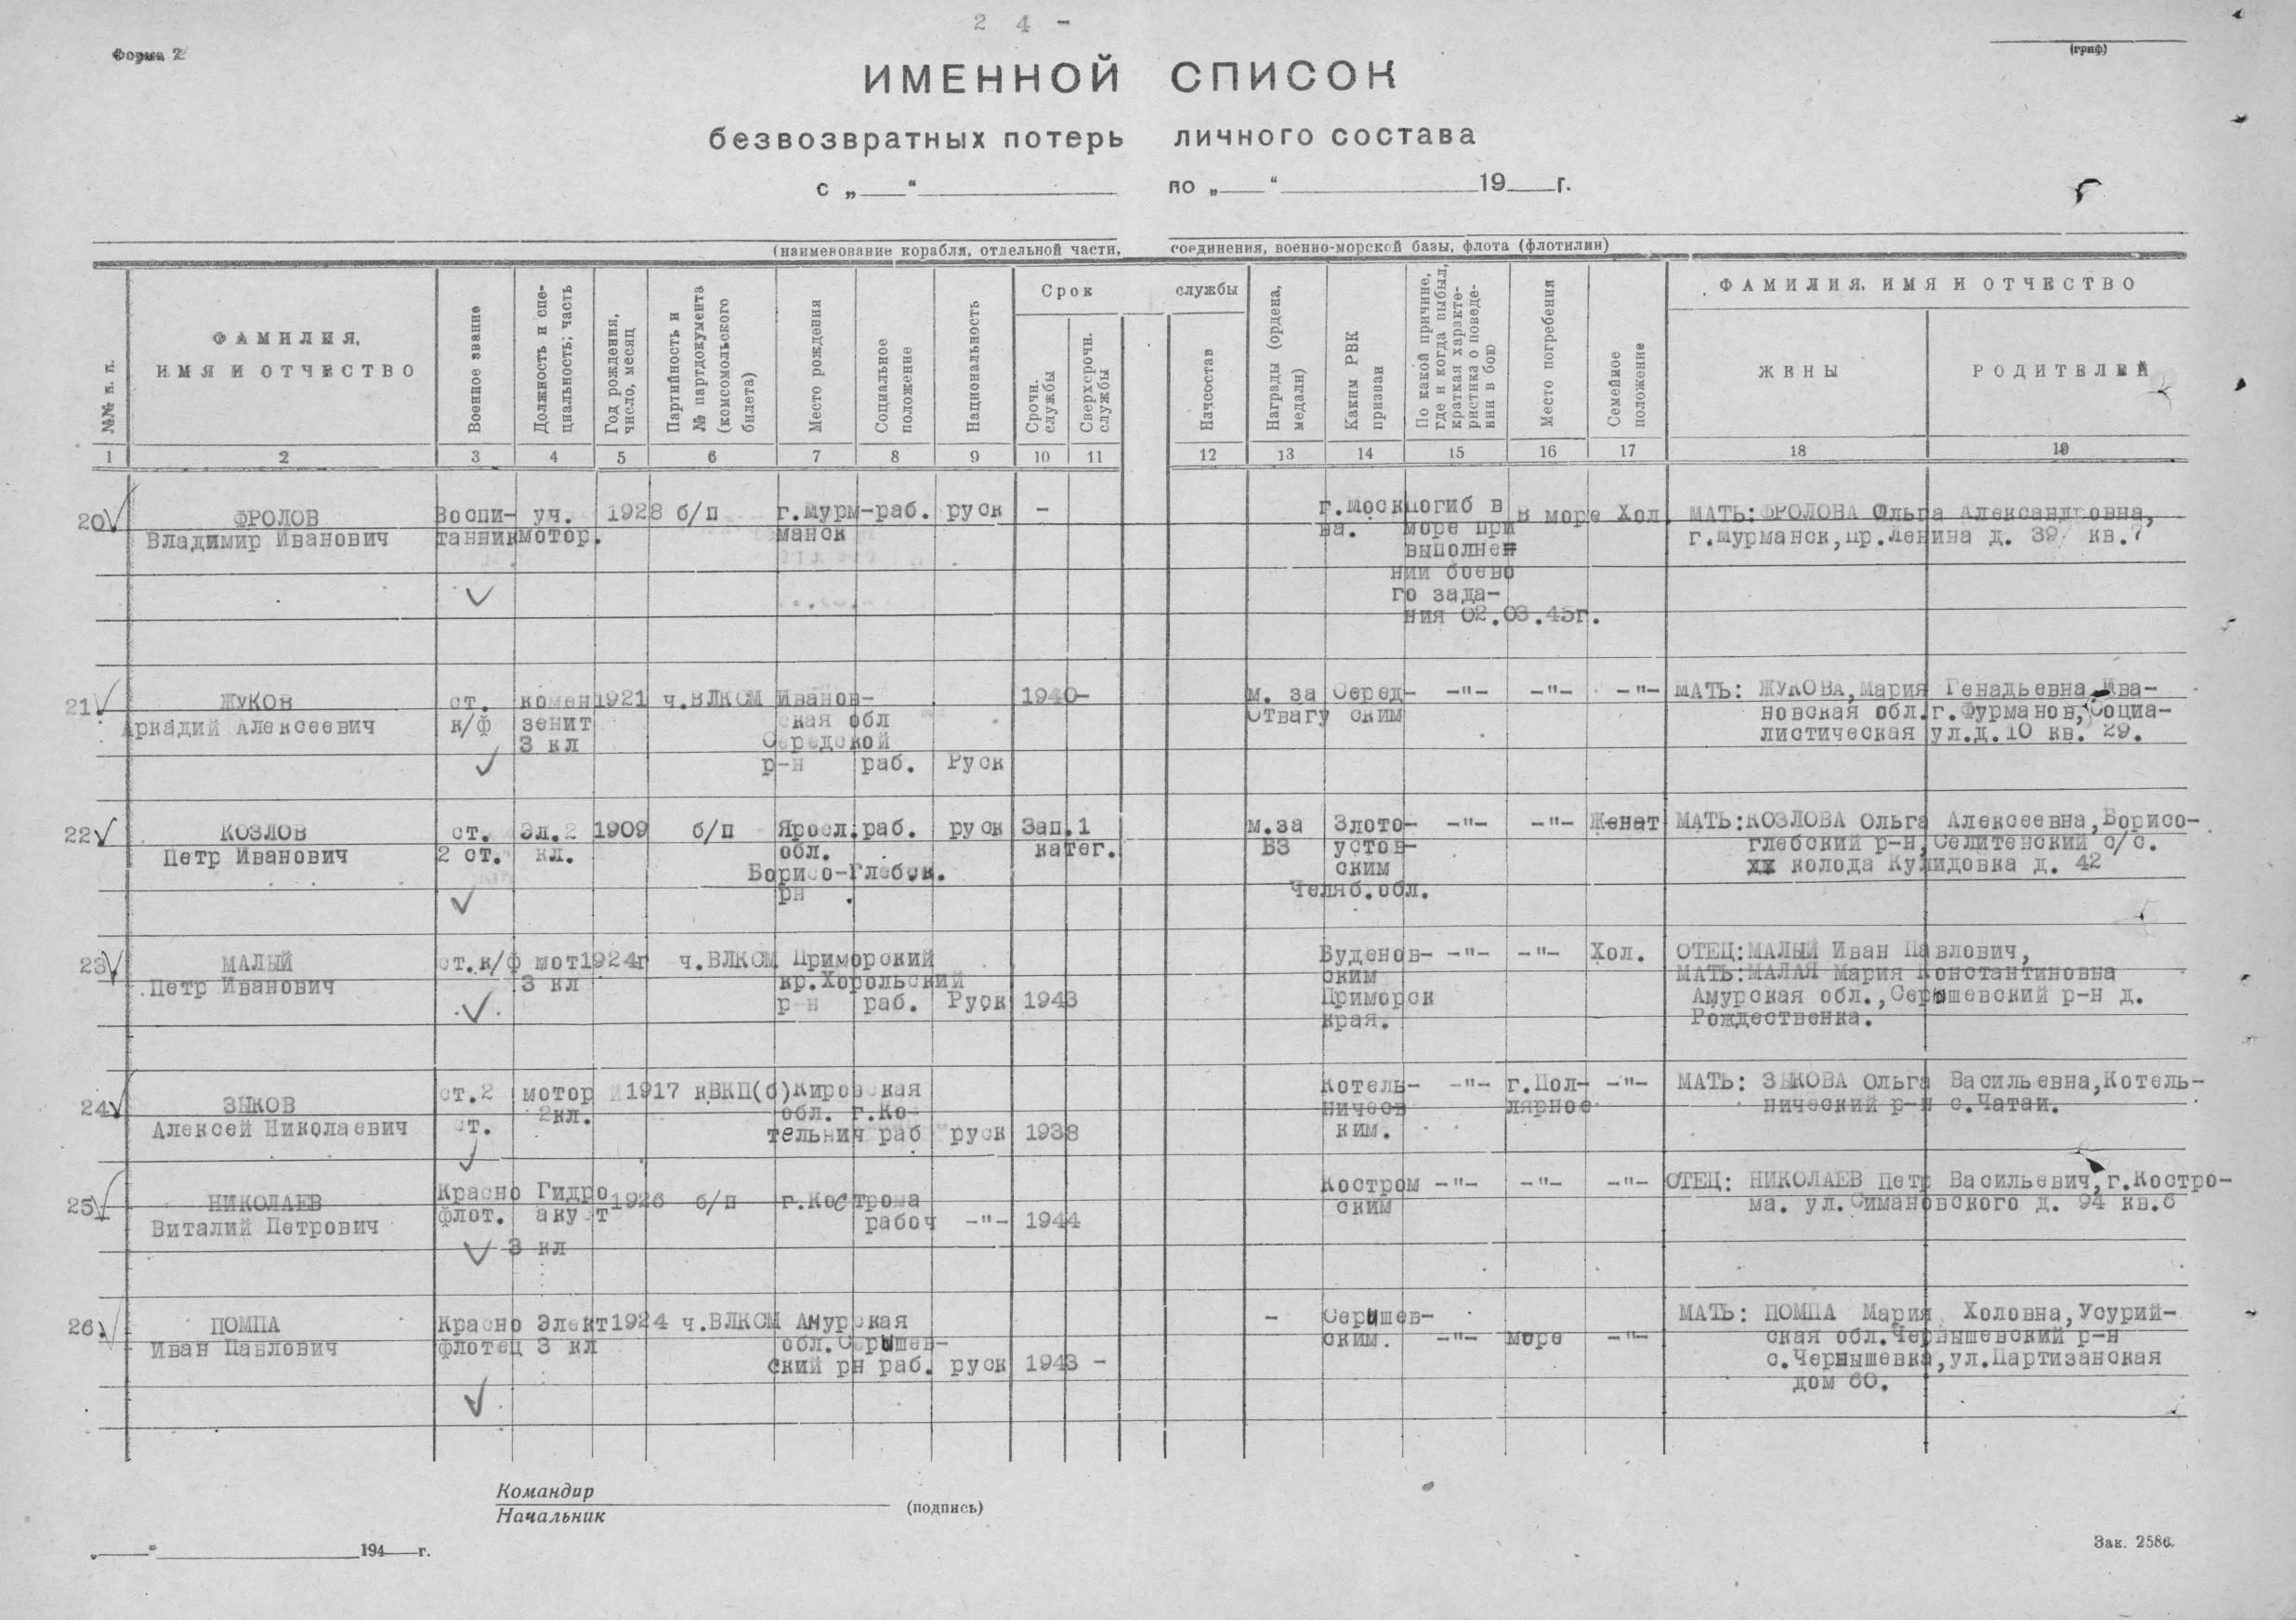 2 4 -
Форма 2
(гриф)
ИМЕННОЙ СПИСОК
безвозвратных потерь личного состава
с „___“ ______ по „___“ ______ 19___г.
(наименование корабля, отдельной части, соединения, военно-морской базы, флота (флотилии)
№№ п. п.
ФАМИЛИЯ,
ИМЯ И ОТЧЕСТВО
Военное звание
Должность и спе-
циальность; часть
Год рождения,
число, месяц
Партийность и
№ партдокумента
(комсомольского
билета)
Место рождения
Социальное
положение
Национальность
Срок службы
Срочн.
службы
Сверхсрочн.
службы
Начсостав
Награды (ордена,
медали)
Каким РВК
призван
По какой причине,
где и когда выбыл,
краткая характе-
ристика о поведе-
нии в бою
Место погребения
Семейное
положение
ФАМИЛИЯ, ИМЯ И ОТЧЕСТВО
ЖЕНЫ
РОДИТЕЛЕЙ
1 2 3 4 5 6 7 8 9 10 11 12 13 14 15 16 17 18 19
20 ФРОЛОВ
Владимир Иванович
Воспи-
танник
уч.
мотор.
1928 б/п
г.Мурм-
манск
раб. руск -
г.Моск
ва.
погиб в
море при
выполнен
нии боево
го зада-
ния 02.03.45г.
в море Хол.
МАТЬ: ФРОЛОВА Ольга Александровна,
г.Мурманск,пр.Ленина д. 39 кв.7
21 ЖУКОВ
Аркадий Алексеевич
ст.
к/ф
комен
зенит
3 кл
1921 ч.ВЛКСМ
Иванов-
ская обл
Середской
р-н раб. Руск
1940-
м. за
Отвагу
Серед-
ским
-"- -"- -"-
МАТЬ: ЖУКОВА,Мария Генадьевна Ива-
новская обл.г.Фурманов,Социа-
листическая ул.д.10 кв. 29.
22 КОЗЛОВ
Петр Иванович
ст.
2 ст.
Эл.2
кл.
1909 б/п
Яросл.
обл.
Борисо-Глебск.
рн
раб. руск
Зап.1
катег.
м.за
БЗ
Злото-
устов-
ским
Челяб.обл.
-"- -"- Женат
МАТЬ:КОЗЛОВА Ольга Алексеевна,Борисо-
глебский р-н,Селитенский с/с.
хх колода Кулидовка д. 42
23 МАЛЫЙ
Петр Иванович
ст.к/ф мот
3 кл
1924г ч.ВЛКСМ
Приморский
кр.Хорольский
р-н раб. Руск 1943
Буденов-
ским
Приморск
края.
-"- -"- Хол.
ОТЕЦ:МАЛЫЙ Иван Павлович,
МАТЬ:МАЛАЯ Мария Константиновна
Амурская обл.,Серышевский р-н д.
Рождественка.
24 ЗЫКОВ
Алексей Николаевич
ст.2
ст.
мотор
2кл.
1917 кВКП(б)
Кировская
обл. г.Ко-
тельнич раб руск 1938
Котель-
ничес
ким.
-"- г.Пол-
лярное
-"-
МАТЬ: ЗЫКОВА Ольга Васильевна,Котель-
нический р-н с.Чатаи.
25 НИКОЛАЕВ
Виталий Петрович
Красно
флот.
Гидро
акуст
3 кл
1926 б/п г.Кострома
рабоч -"- 1944
Костром
ским
-"- -"- -"-
ОТЕЦ: НИКОЛАЕВ Петр Васильевич,г.Костро-
ма. ул.Симановского д. 94 кв.6
26. ПОМПА
Иван Павлович
Красно
флотец
Элект
3 кл
1924 ч.ВЛКСМ
Амурская
обл.Серышев-
ский рн раб. руск 1943 -
-
Серышев-
ским.
-"- море -"-
МАТЬ: ПОМПА Мария Холовна,Усурий-
ская обл.Чернышевский р-н
с.Чернышевка,ул.Партизанская
дом 60.
Командир
Начальник
(подпись)
„___“ ______ 194___г.
Зак. 2586.